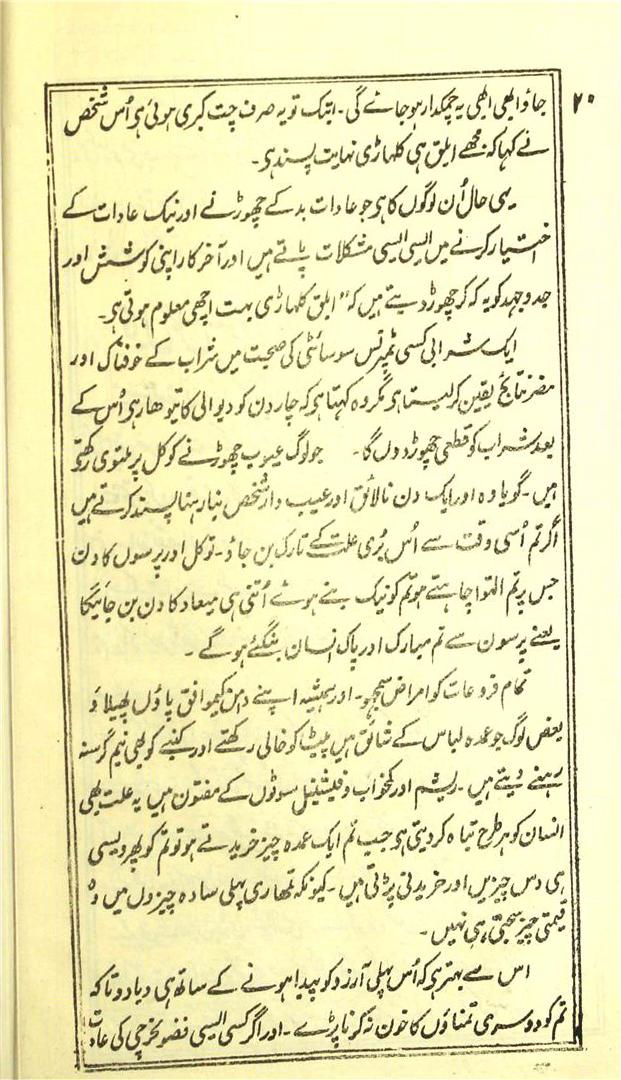 ۲۰
جاؤ ابھی ابھی یہ چمکدار ہو جائے گی۔ ابتک تو یہ صرف چت کبری ہوئی ہی اُس شخص
نے کہا کہ مجھے ابلق ہی کلہاڑی نہایت پسند ہی۔
یہی حال اُن لوگوں کا ہی جو عادات بد کے چھوڑنے اور نیک عادات کے
اختیار کرنے میں ایسی ایسی مشکلات پاتے ہیں اور آخر کار اپنی کوشش اور
جدوجہد کو یہ کہ کر چھوڑ دیتے ہیں کہ "ابلق کلہاڑی بہت اچھی معلوم ہوتی ہی۔
ایک شرابی کسی ٹمپرنس سوسائٹی کی صحبت میں شراب کے خوفناک اور
مضر نتائج یقین کر لیتا ہی مگر وہ کہتا ہی کہ چار دن کو دیوالی کا تیوہار ہی اُس کے
بعد شراب کو قطعی چھوڑ دوں گا۔ جو لوگ عیوب چھوڑنے کو کل پر ملتوی رکھتے
ہیں۔ گویا وہ اور ایک دن نالائق اور عیب دار شخص بنا رہنا پسند کرتے ہیں
اگر تم اُسی وقت سے اُس بُری علت کے تارک بن جاؤ۔ تو کل اور پرسوں کا دن
جس پر تم التوا چاہتے ہو تم کو نیک بنے ہوئے اُتنی ہی میعاد کا دن بن جائیگا
یعنے پرسون سے تم مبارک اور پاک انسان بنگئے ہو گے۔
تمام فروعات کو امراض سمجہو۔ اور ہمیشہ اپنے دہن کیموافق پاؤں پھیلاؤ
بعض لوگ جو عمدہ لباس کے شائق ہیں پیٹ کو خالی رکھتے اور کنبے کو بھی نیم گرسنہ
رہنے دیتے ہیں۔ ریشم اور کمخواب و فیشنیبل سوٹوں کے مفتون ہیں یہ علت بھی
انسان کو ہر طرح تباہ کر دیتی ہی جب تم ایک عمدہ چیز خریدتے ہو تو تم کو پھر ویسی
ہی دس چیزیں اور خریدنی پڑتی ہیں۔ کیونکہ تمھاری پہلی سادہ چیزوں میں وہ
قیمتی چیز سجتی ہی نہیں۔
اس سے بہتر ہی کہ اُس پہلی آرزو کو پیدا ہونے کے ساتھ ہی دبا دو تا کہ
تم کو دوسری تمناؤں کا خون نہ کرنا پڑے۔ اور اگر کسی ایسی فضولخرچی کی عادت